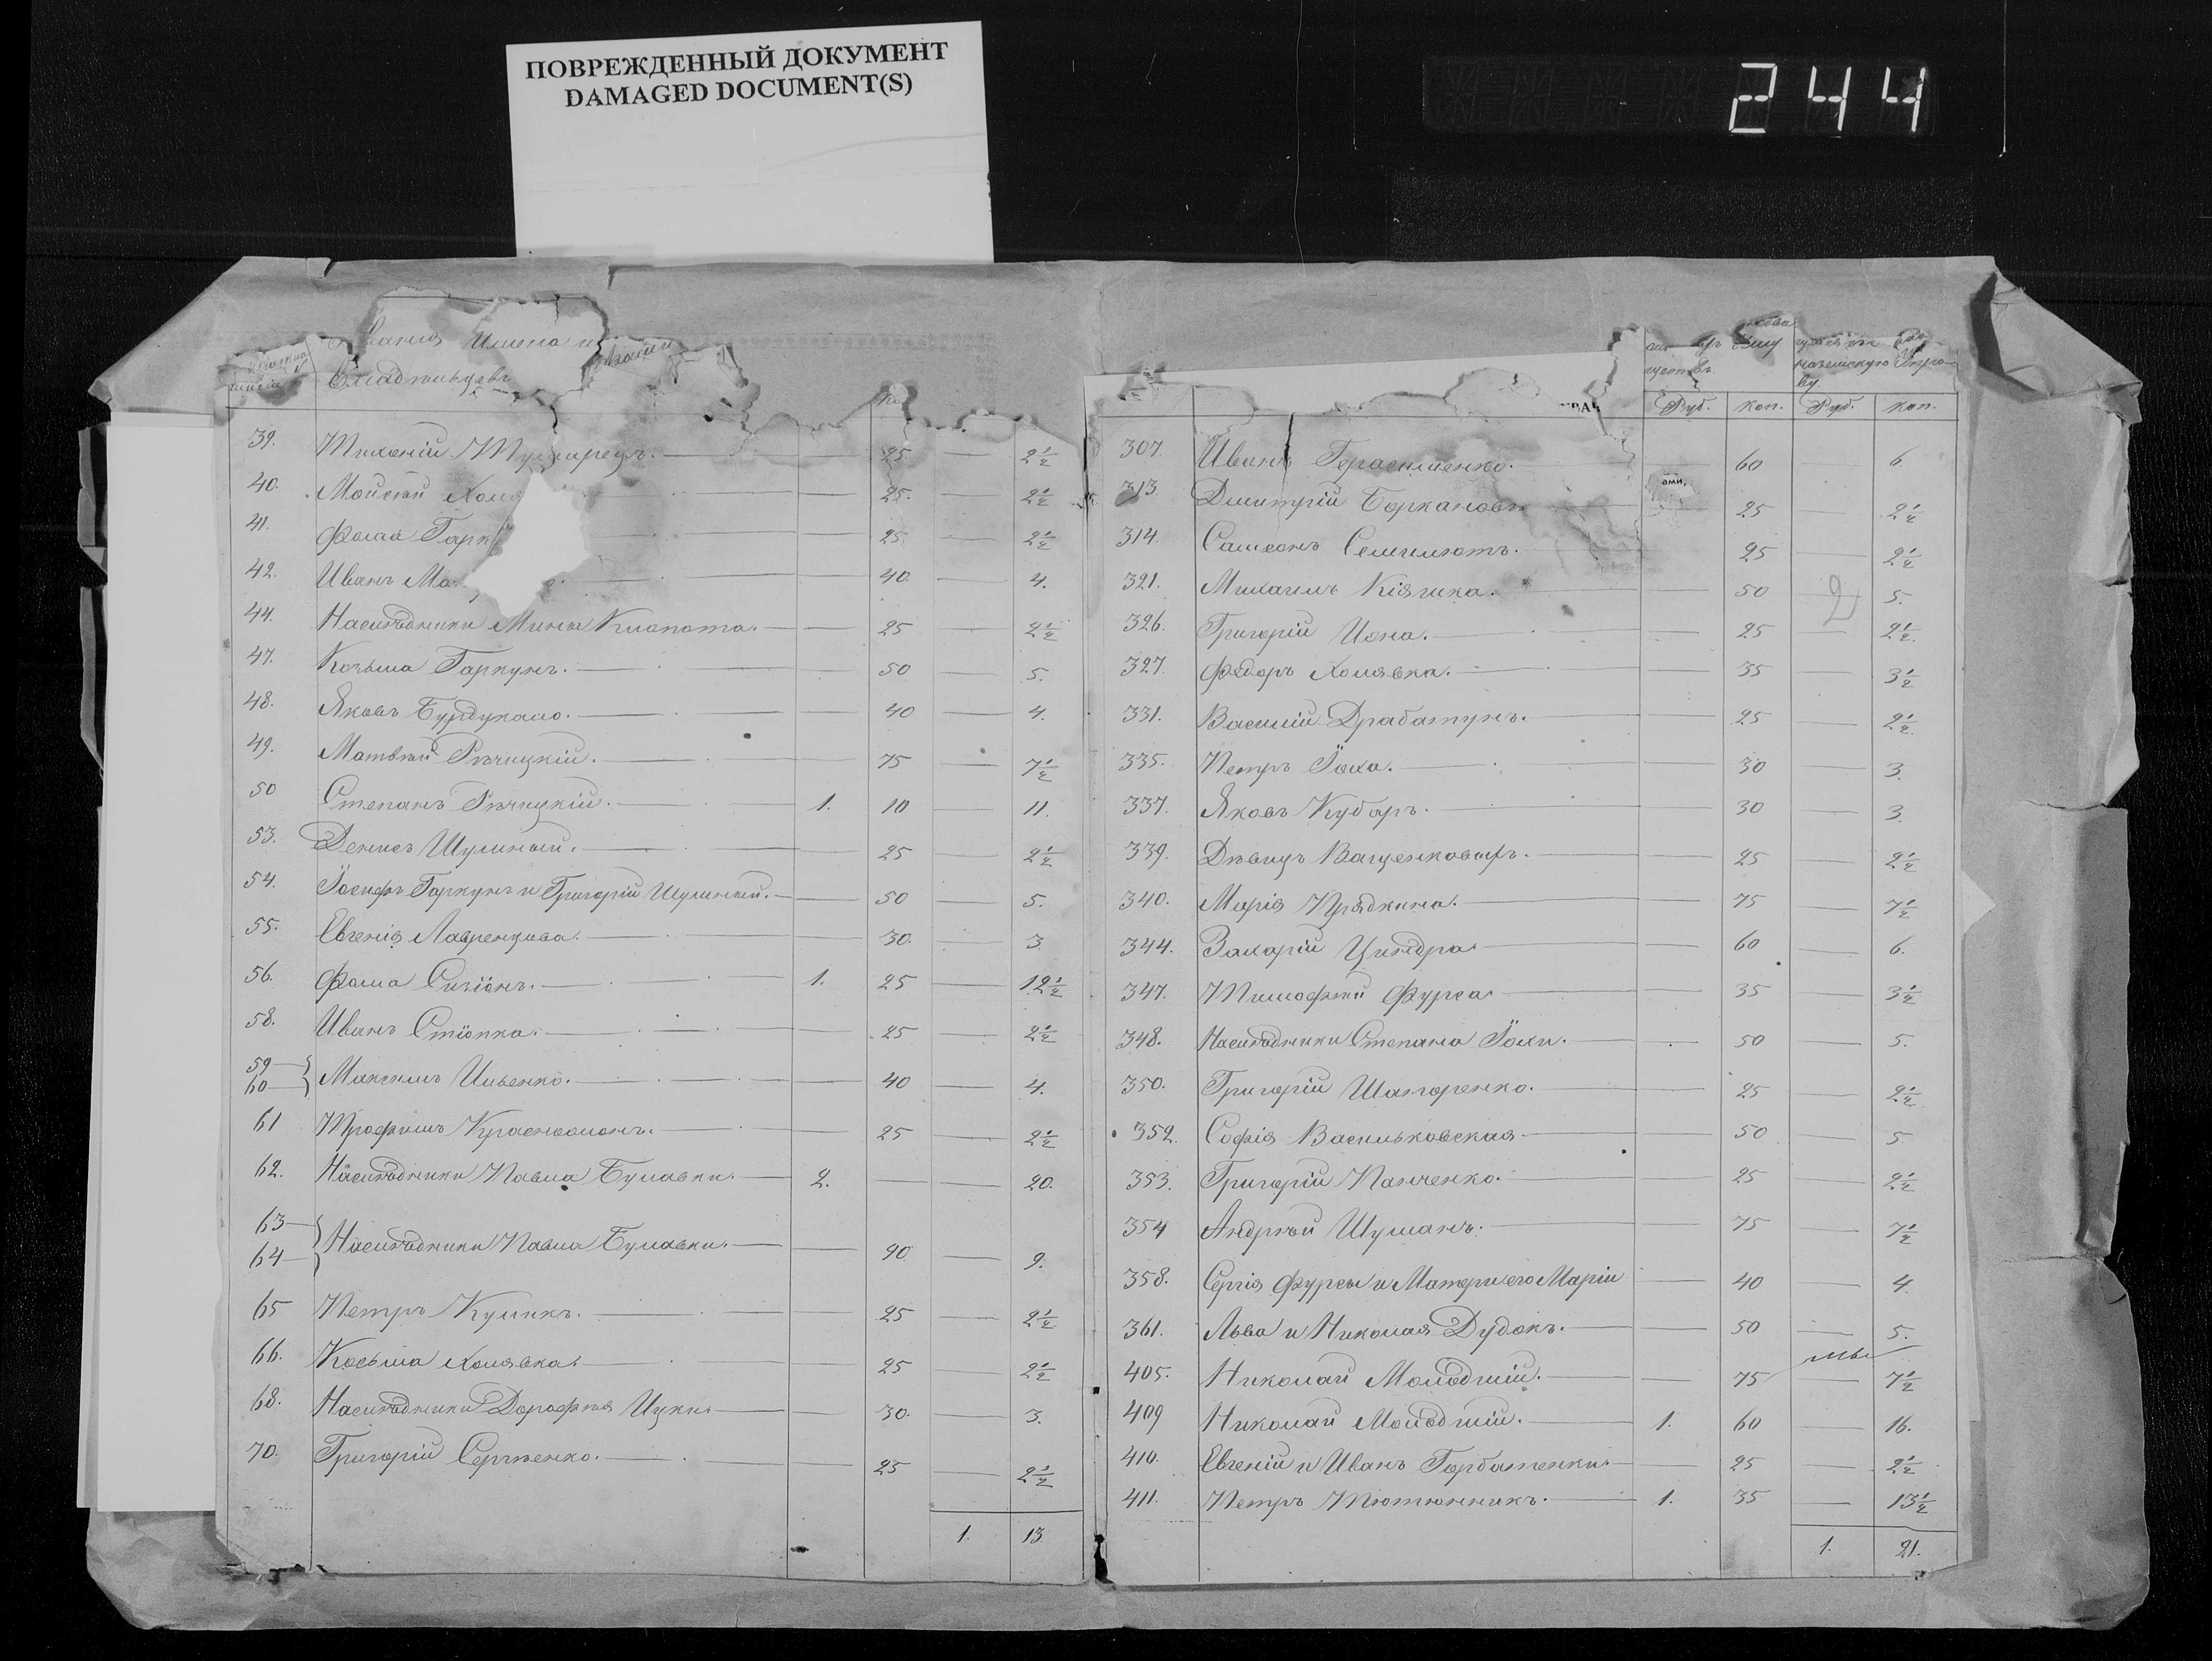 ПОВРЕЖДЕННЫЙ ДОКУМЕНТ
DAMAGED DOCUMENT(S)
244
Имена и
Владѣльцевъ
39. 25 — 2½
40. Моисей Хомя 25. — 2½
41. Фома Гарк 25. — 2½
42. Иванъ Ма 40. — 4.
44. Наслѣдники Мины Клопота. — 25 — 2½
47. Козьма Гаркунъ. — 50 — 5.
48. Яковъ Бурдукало. — 40 — 4.
49. Матвѣй Рѣчицкій. — 75 — 7½
50 Степанъ Рѣчицкій. — 1. 10 — 11.
53. Денисъ Шулиный. — 25 — 2½
54. Іосифъ Гаркунъ и Григорій Шулиный. — 50 — 5.
55. Евгенія Лавренцова. — 30. — 3.
56. Фома — 1. 25 — 12½
58. Иванъ Стіопка. — 25 — 2½
59
60 Максимъ — 40 — 4.
61 Трофимъ — 25 — 2½
62. Наслѣдники Павла Булавки. — 2. — — 20.
63
64 Наслѣдники Павла Булавки. — 90 — 9.
65 Петръ Куликъ. — 25 — 2½
66. Косьма Хомявка. — 25 — 2½
68. Наслѣдники Дорофѣя Цуки — 30. — 3.
70. Григорій Сергѣенко. — 25 — 2½
1. 13
Руб. Коп. Руб. Коп.
307. Иванъ Герасименко. 60 — 6
313. Дмитрій Боркановъ 25 — 2½
314. Самсонъ Семимютъ. 25 — 2½
321. Михаилъ Кіяшка. — 50 — 5.
2
326. Григорій Иона. — 25 — 2½
327. Федоръ Хомявка. — 35 — 3½
331. Василій Драбатунъ. — 25 — 2½
335. Петръ Іоха. — 30 — 3.
337. Яковъ Кубарь. — 30 — 3.
339. Дѣвицъ Ващенковыхъ. — 25 — 2½
340. Марія Прядкина. — 75 — 7½
344. Захарій Циндра — 60 — 6.
347. Тимофѣй Фурса — 35 — 3½
348. Наслѣдники Степана Іохи. — 50 — 5.
350. Григорій Шапоренко. — 25 — 2½
352. Софія Васильковская — 50 — 5
353. Григорій Панченко. — 25 — 2½
354 Андрѣй Шуманъ. — 75 — 7½
358. Сергія Фурсы и Матери его Маріи — 40 — 4.
361. Льва и Николая Дудокъ. — 50 — 5.
405. Николай Молодшій. — 75 — 7½
409 Николай Молодшій. — 1. 60 — 16.
410. Евгеній и Иванъ Горбатенки — 25 — 2½
411. Петръ Тютюнникъ. — 1. 35 — 13½
1. 21.